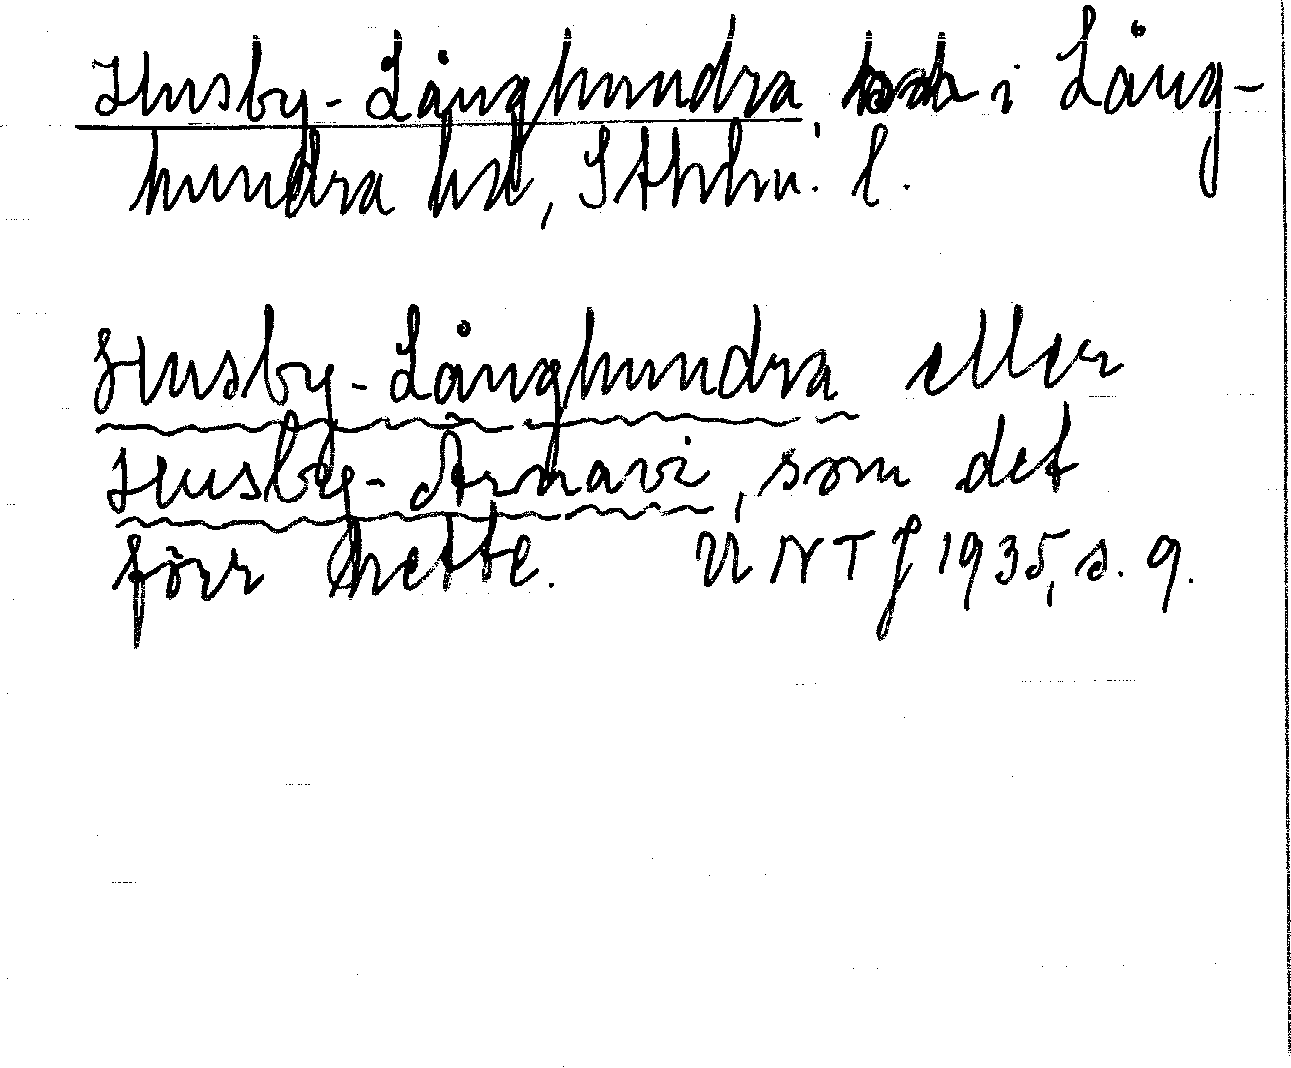 Husby-Långhundra, i Lång-
hundra hd, Sthlm. l.
Husby-Långhundra eller
Husby-Ärnavi, som det
förr hette. UNT J 1935, s. 9.